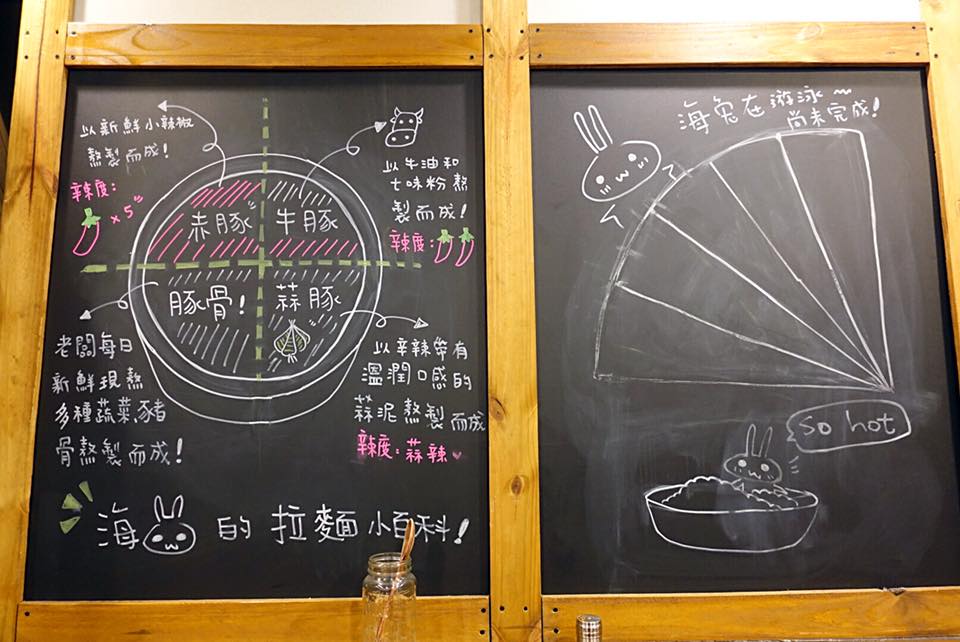 以新鮮小辣椒
熬製而成!
辣度:
x5"
以牛油和
七味粉熬
製而成!
辣度:
赤豚"
牛豚
豚骨!
蒜豚
老闆每日
新鮮現熬
多種蔬菜、豬
骨熬製而成!
以辛辣帶有
溫潤口感的
蒜泥熬製而成
辣度:蒜辣
海 的拉麵小百科!
海兔在游泳~
尚未完成!
So hot